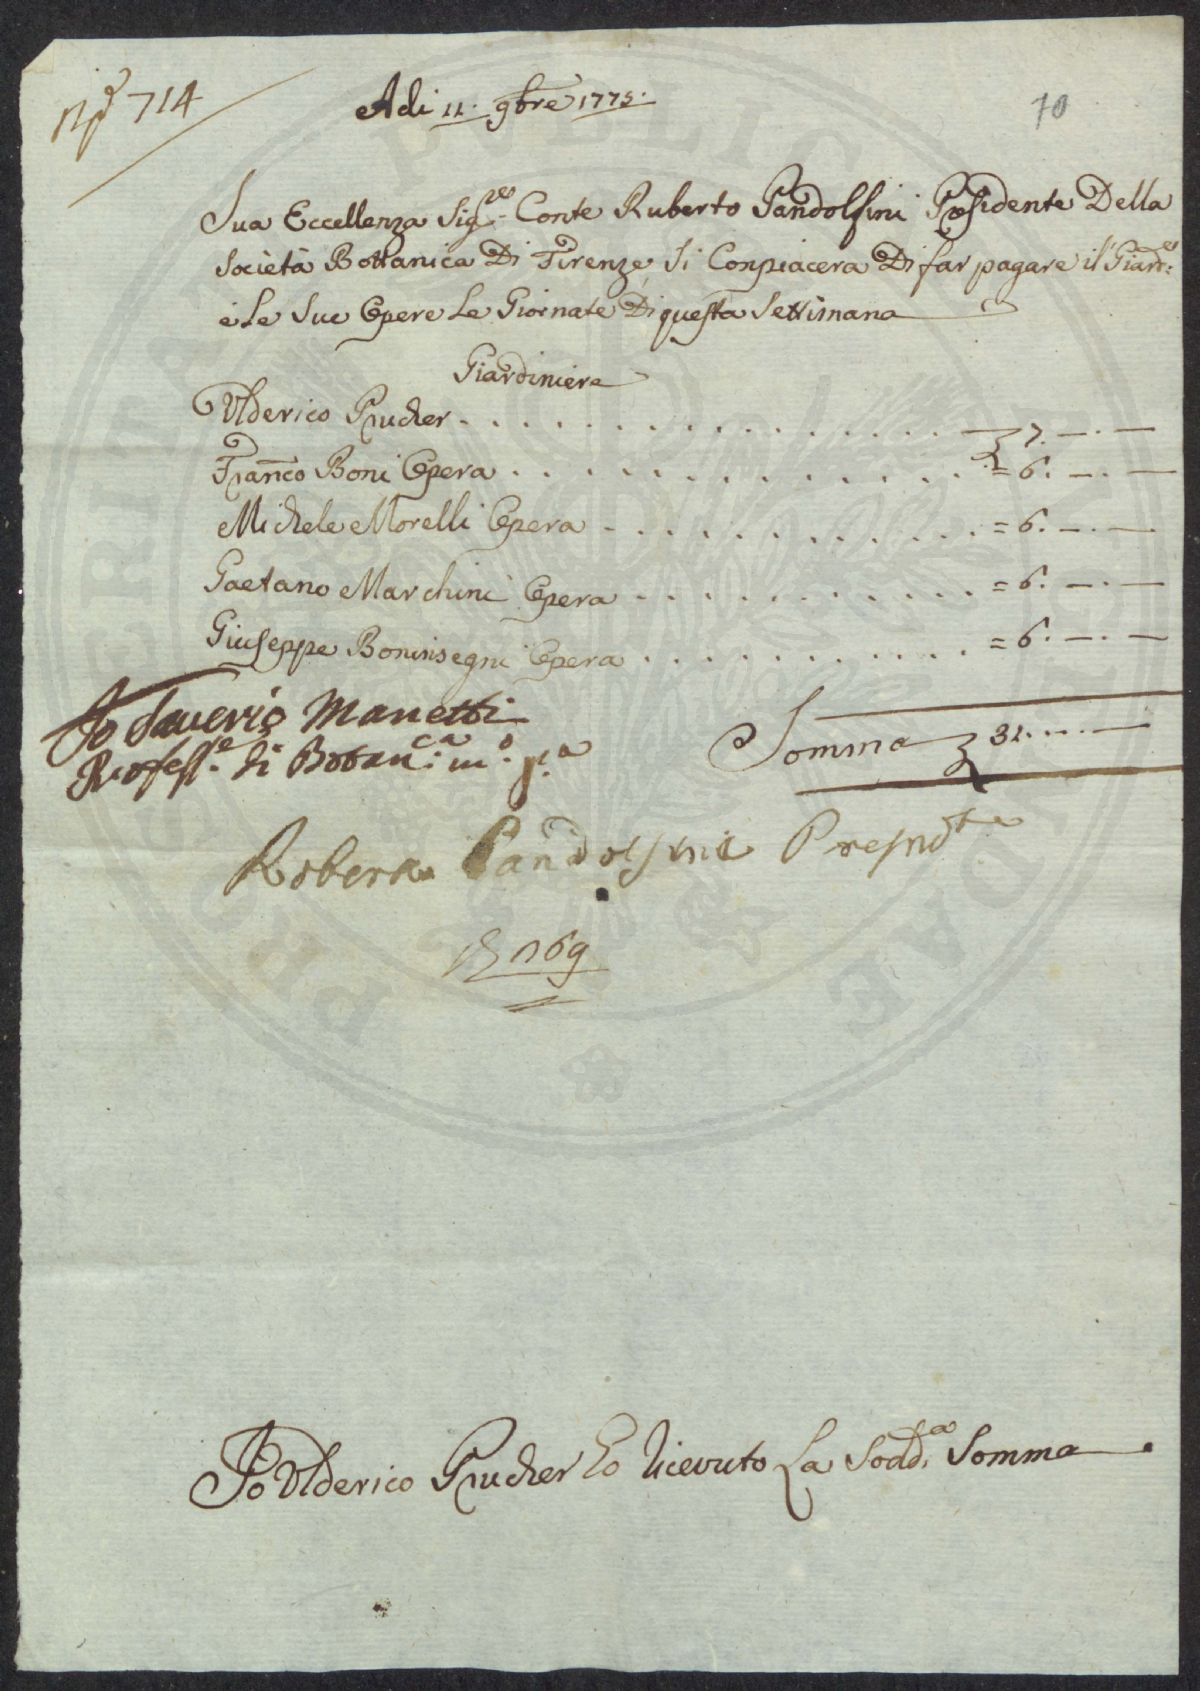 Nº 714
Adi 11. 9bre 1775.
70
Sua Eccellenza Sigre. Conte Ruberto Pandolfini Presidente Della
Società Bottanica Di Firenze Si Conpiacera Di far pagare il Giard:e
e Le Sue Opere Le Giornate Di questa Settimana
Giardiniere
Ulderico Prucher . . . . . . . . . . . . . . . . 7. — . —
Franco Boni Opera . . . . . . . . . . . . . . = 6. — . —
Michele Morelli Opera . . . . . . . . . . . . = 6. — . —
Gaetano Marchini Opera . . . . . . . . . . . = 6. — . —
Giuseppe Boninsegni Opera . . . . . . . . . . = 6. — . —
Io Saverio Manetti
Profess.e di Botan.ca m.o p.a
Somma 31. . . . —
Roberto Pandolfini Presid.te
169
Io Ulderico Prucher Ò Ricevuto La Sodd.a Somma
PUBLICA